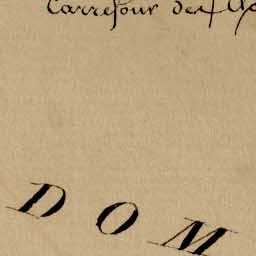 Carrefour des
D O M